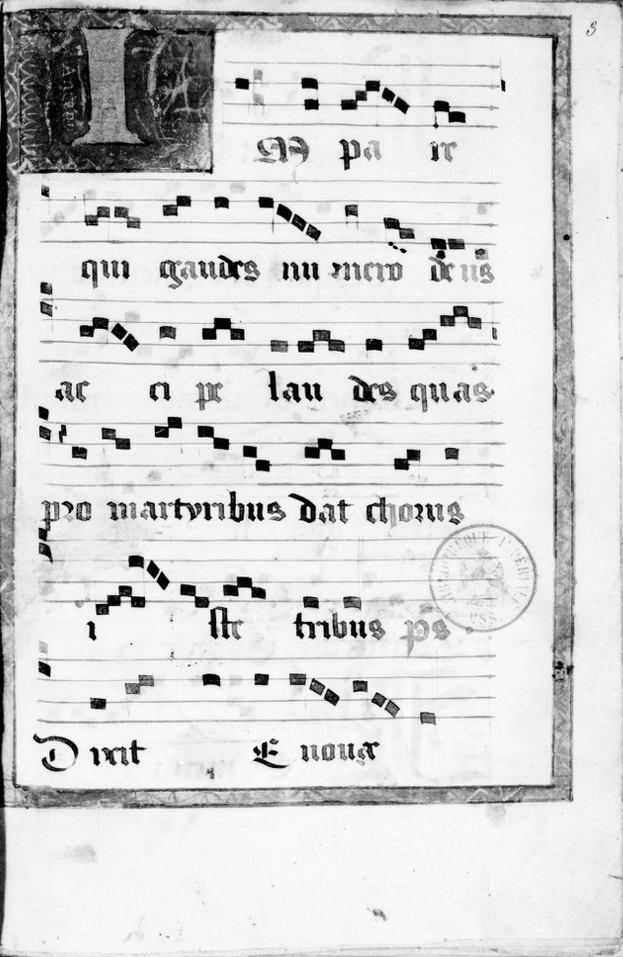 3
IM pa ir
qui gaudes nu mero deus
ac ci pe lau des quas
pro martyribus dat chorus
i ste tribus ps
Dixit E nouae